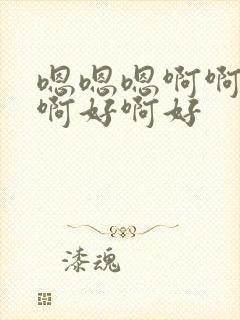 嗯嗯嗯啊啊
啊好啊好
漆魂